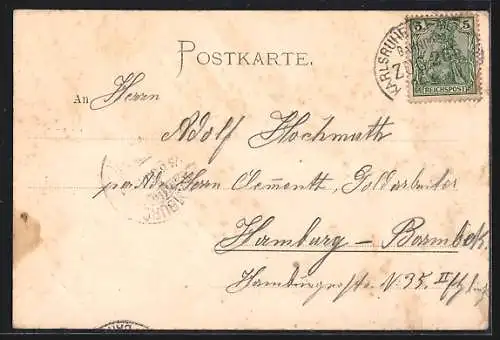 5 5
REICHSPOST
KARLSRUHE
POSTKARTE.
An Herrn
Adolf Hochmuth
per Adr. Herrn Clementt, Goldarbeiter
Hamburg – Barmbek
Hamburgerstr. N. 95. II